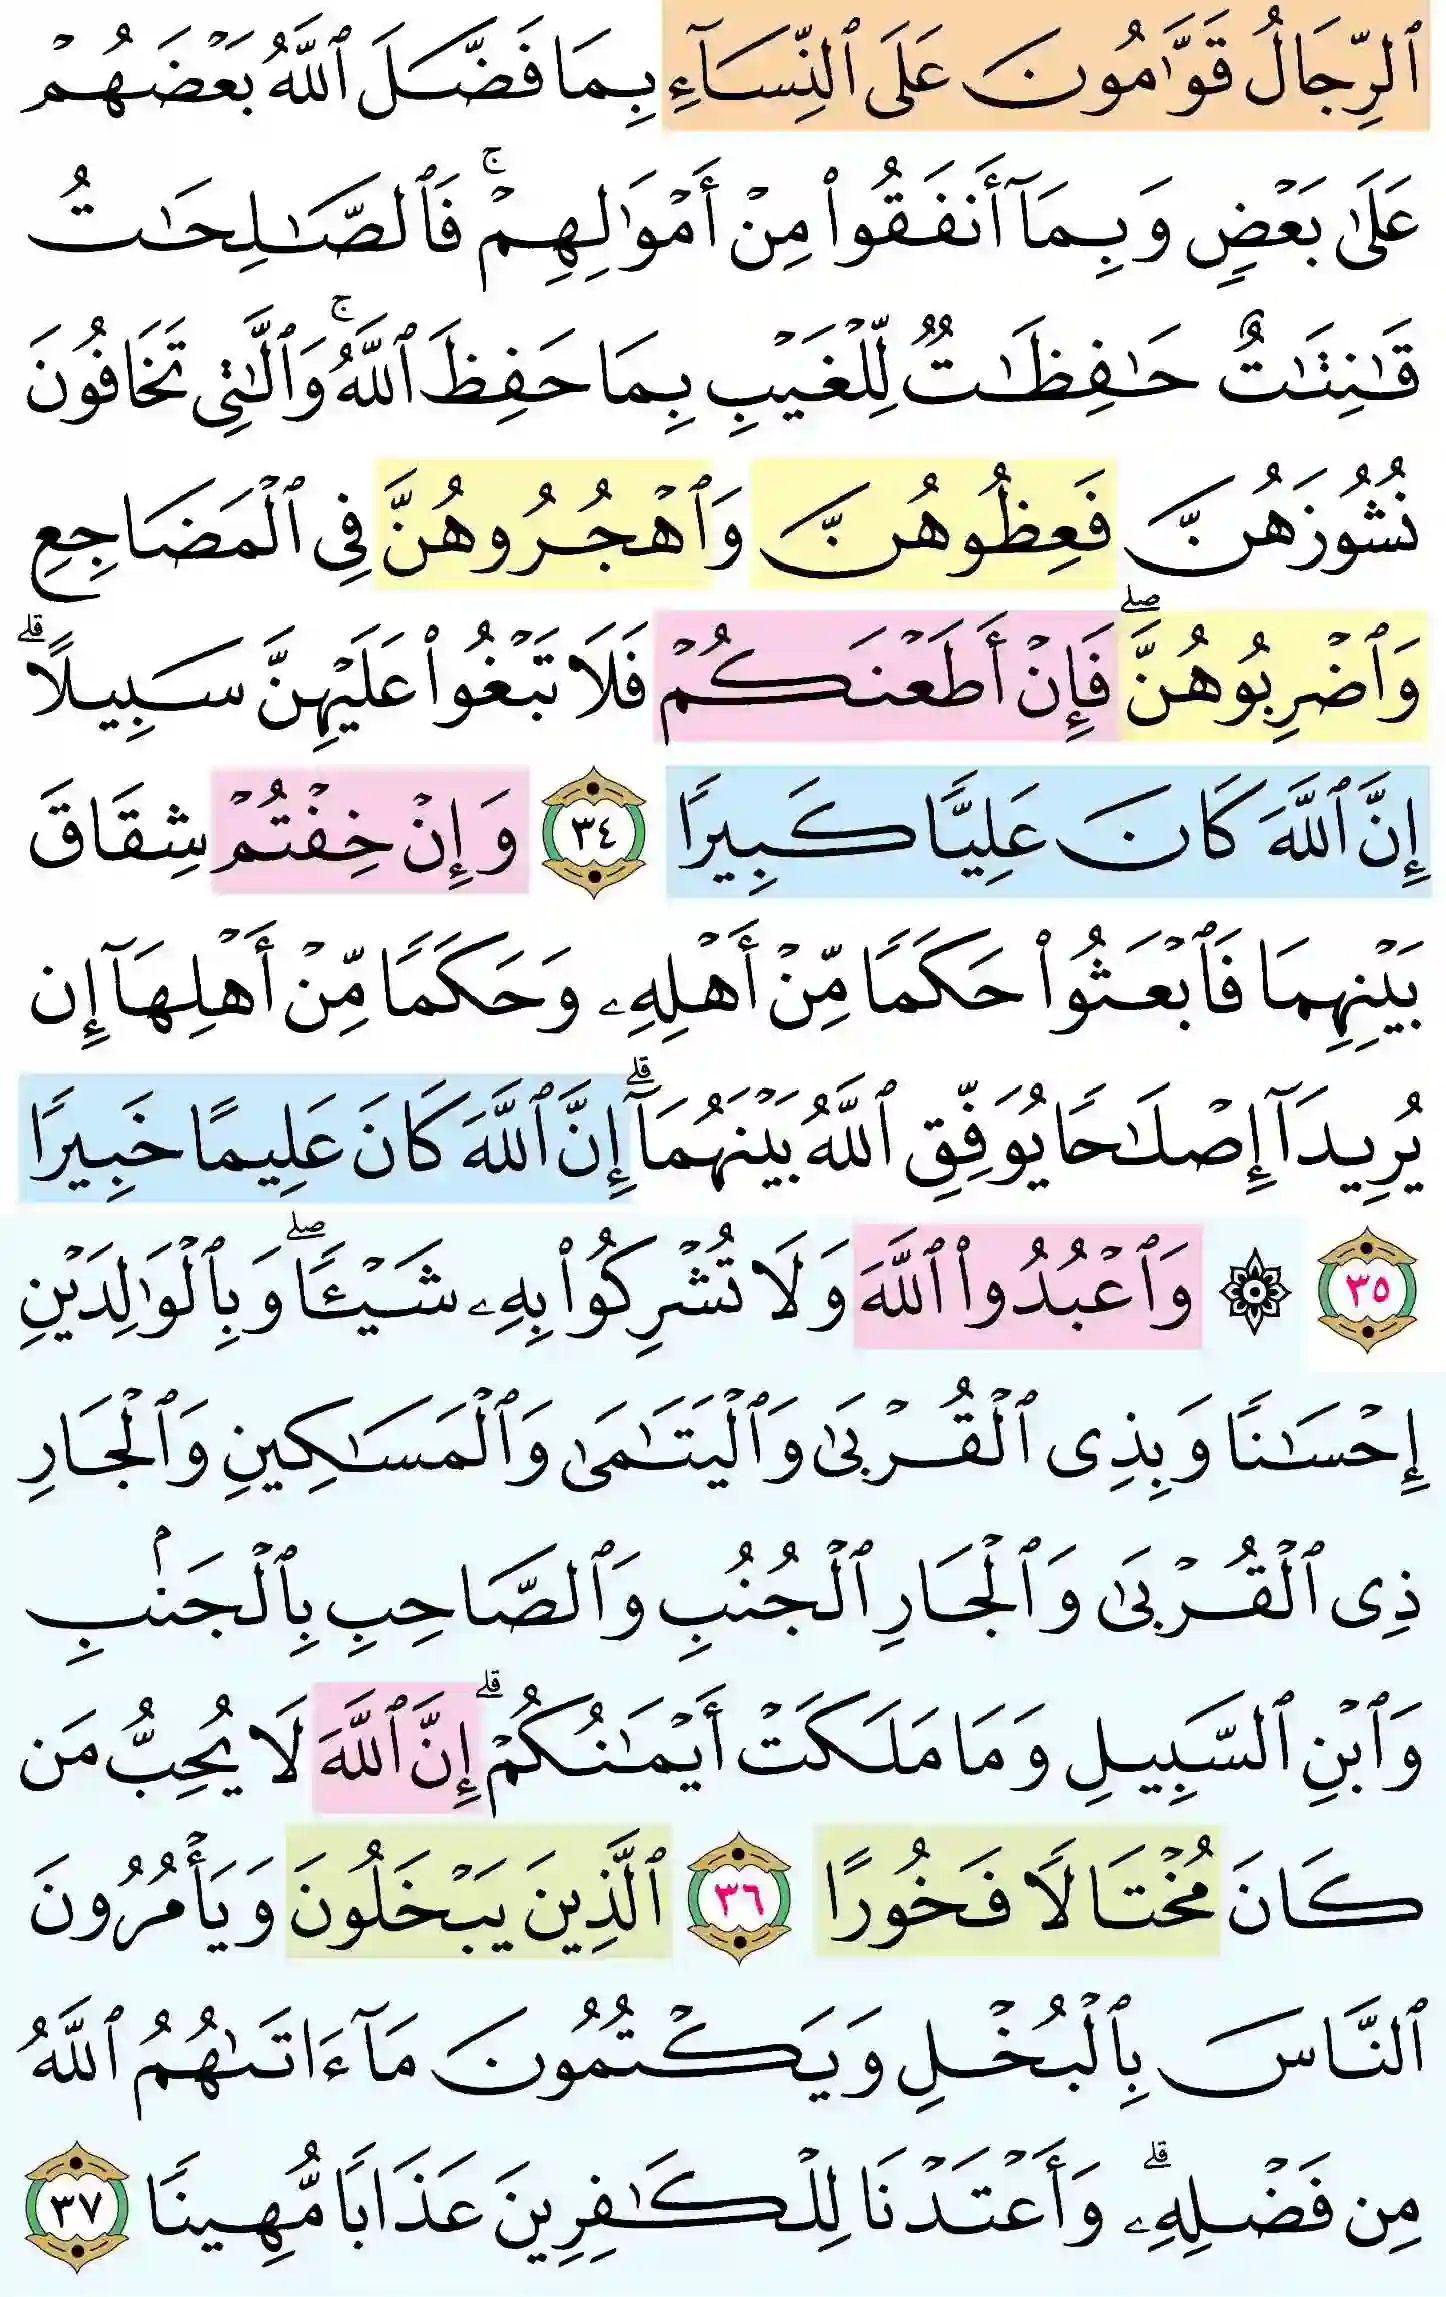 ٱلرِّجَالُ قَوَّٰمُونَ عَلَى ٱلنِّسَآءِ بِمَا فَضَّلَ ٱللَّهُ بَعۡضَهُمۡ
عَلَىٰ بَعۡضٖ وَبِمَآ أَنفَقُواْ مِنۡ أَمۡوَٰلِهِمۡۚ فَٱلصَّٰلِحَٰتُ
قَٰنِتَٰتٌ حَٰفِظَٰتٞ لِّلۡغَيۡبِ بِمَا حَفِظَ ٱللَّهُۚ وَٱلَّٰتِي تَخَافُونَ
نُشُوزَهُنَّ فَعِظُوهُنَّ وَٱهۡجُرُوهُنَّ فِي ٱلۡمَضَاجِعِ
وَٱضۡرِبُوهُنَّۖ فَإِنۡ أَطَعۡنَكُمۡ فَلَا تَبۡغُواْ عَلَيۡهِنَّ سَبِيلًاۗ
إِنَّ ٱللَّهَ كَانَ عَلِيّٗا كَبِيرٗا ٣٤ وَإِنۡ خِفۡتُمۡ شِقَاقَ
بَيۡنِهِمَا فَٱبۡعَثُواْ حَكَمٗا مِّنۡ أَهۡلِهِۦ وَحَكَمٗا مِّنۡ أَهۡلِهَآ إِن
يُرِيدَآ إِصۡلَٰحٗا يُوَفِّقِ ٱللَّهُ بَيۡنَهُمَآۗ إِنَّ ٱللَّهَ كَانَ عَلِيمًا خَبِيرٗا
٣٥ ۞ وَٱعۡبُدُواْ ٱللَّهَ وَلَا تُشۡرِكُواْ بِهِۦ شَيۡـٔٗاۖ وَبِٱلۡوَٰلِدَيۡنِ
إِحۡسَٰنٗا وَبِذِي ٱلۡقُرۡبَىٰ وَٱلۡيَتَٰمَىٰ وَٱلۡمَسَٰكِينِ وَٱلۡجَارِ
ذِي ٱلۡقُرۡبَىٰ وَٱلۡجَارِ ٱلۡجُنُبِ وَٱلصَّاحِبِ بِٱلۡجَنۢبِ
وَٱبۡنِ ٱلسَّبِيلِ وَمَا مَلَكَتۡ أَيۡمَٰنُكُمۡۗ إِنَّ ٱللَّهَ لَا يُحِبُّ مَن
كَانَ مُخۡتَالٗا فَخُورًا ٣٦ ٱلَّذِينَ يَبۡخَلُونَ وَيَأۡمُرُونَ
ٱلنَّاسَ بِٱلۡبُخۡلِ وَيَكۡتُمُونَ مَآ ءَاتَىٰهُمُ ٱللَّهُ
مِن فَضۡلِهِۦۗ وَأَعۡتَدۡنَا لِلۡكَٰفِرِينَ عَذَابٗا مُّهِينٗا ٣٧